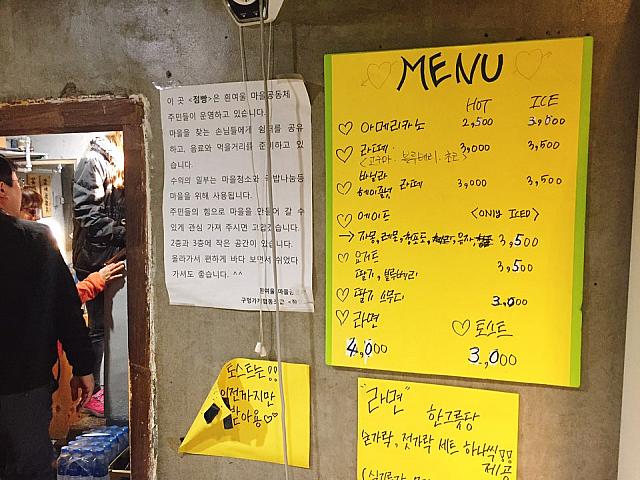 이 곳 <점빵>은 흰여울 마을공동체
주민들이 운영하고 있습니다.
마을을 찾는 손님들에게 쉼터를 공유
하고, 음료와 먹을거리를 준비하고 있
습니다.
수익의 일부는 마을청소와 밥나눔등
마을을 위해 사용됩니다.
주민들의 힘으로 마을을 만들어 갈 수
있게 관심 가져 주시면 고맙겠습니다.
2층과 3층에 작은 공간이 있습니다.
올라가서 편하게 바다 보면서 쉬었다
가셔도 좋습니다. ^^
흰여울 마을
MENU
HOT ICE
♡ 아메리카노 2,500 3,000
♡ 라떼 3,000 3,500
<고구마. 블루베리. 초코>
♡ 바닐라
헤이즐넛 라떼 3,000 3,500
♡ 에이드 <ONLY ICED>
→ 자몽, 레몬, 청포도, 유자, 3,500
♡ 요거트 3,500
딸기, 블루베리
♡ 딸기 스무디 3,000
♡ 라면
4,000
♡ 토스트
3,000
토스트는!!
이전까지만
받아용♡♡
"라면"
한그릇당
숟가락, 젓가락 세트 하나씩!!
제공